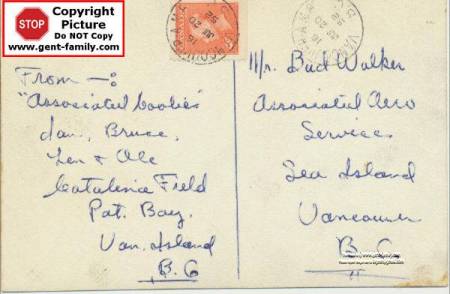 STOP
Copyright
Picture
Do Not Copy
www.gent-family.com
From —:
"Associated boobies"
Ian, Bruce,
Len + Ole
Catalina Field
Pat. Bay.
Van. Island
B.C
Mr. Bud Walker
Associated Aero
Services
Sea Island
Vancouver
B.C